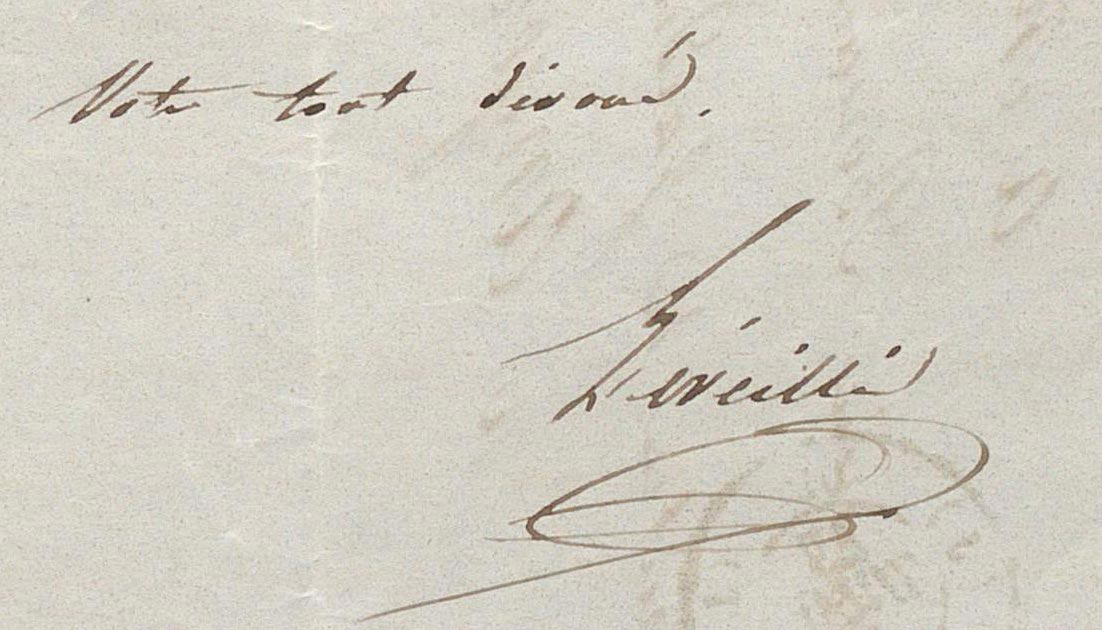 Votre tout dévoué.
Léveillé